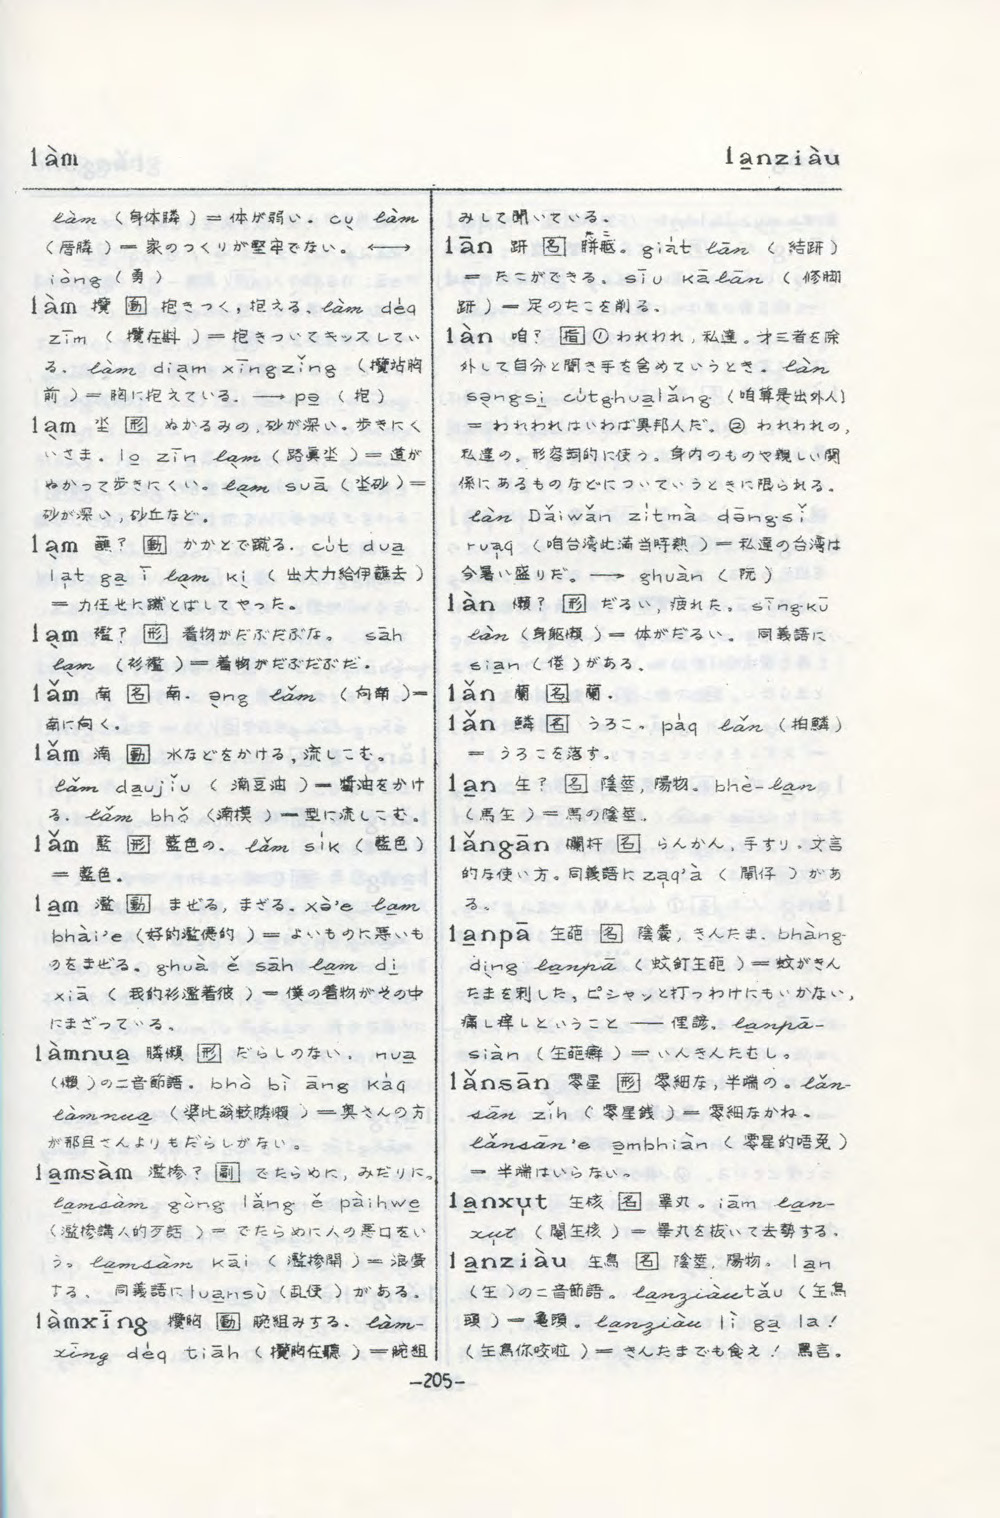 làm
lanziàu
làm (身体膦) = 体が弱い。cu làm
(厝膦) = 家のつくりが堅牢でない。 ⟷
iòng (勇)
làm 攬 [動] 抱きつく,抱える。làm déq
zīm ( 攬在斟 ) = 抱きついてキッスしてい
る。làm diam xīngzǐng (攬坫胸
前) = 胸に抱えている。⟶ pe (抱)
lam 坔 [形] ぬかるみの,砂が深い。歩きにく
いさま。lo zīn lam (路真坔) = 道が
ぬかって歩きにくい。lam suā (坔砂) =
砂が深い,砂丘など。
lam ? [動] かかとで蹴る。cút dua
lat ga ī lam ki ( 出大力給伊 去 )
= 力任せに蹴とばしてやった。
lam 襤? [形] 着物がだぶだぶな。 sāh
lam (衫襤) = 着物がだぶだぶだ。
lǎm 南 [名] 南。ǝng lǎm (向南) =
南に向く。
lǎm 湳 [動] 水などをかける,流しこむ。
lǎm daujǐu ( 湳豆油 ) = 醬油をかけ
る。lǎm bhǒ (湳模) = 型に流しこむ。
lǎm 藍 [形] 藍色の。lǎm sik (藍色)
= 藍色。
lam 濫 [動] まぜる,まざる。xə̀'e lam
bhài'e (好的濫 的) = よいものに悪いも
のをまぜる。ghuà ě sāh lam di
xiā ( 我的衫濫著彼 ) = 僕の着物がその中
にまざっている。
làmnua 膦懶 [形] だらしのない。nua
(懶)の二音節語。bhò bì āng kàq
làmnua (婆比翁較膦懶) = 奥さんの方
が那さんよりもだらしがない。
lamsàm 濫摻? [副] でたらめに,みだりに。
lamsàm gòng lǎng ě pàihwe
(濫摻講人的歹話) = でたらめに人の悪口をい
う。lamsàm kāi ( 濫摻開 ) = 浪費
する。 同義語に luansù (乱使) がある。
làmxīng 攬胸 [動] 腕組みする。làm-
xīng déq tiāh ( 攬胸在聽 ) = 腕組
みして聞いている。
lān 趼 [名] 胼胝。giát lān ( 結趼 )
= たこができる。siu kā lān ( 修脚
趼 ) = 足のたこを削る。
làn 咱? [指] ①われわれ,私達。才三者を除
外して自分と聞き手を含めていうとき。làn
sǝngsi cútghualǎng (咱算是出外人)
= われわれはいわば異邦人だ。② われわれの,
私達の。形容詞的に使う。身内のものや親しい関
係にあるものなどについていうときに限られる。
làn Dǎiwǎn zitmà dāngsǐ
ruaq (咱台湾此満当時熱) = 私達の台湾は
今暑い盛りだ。⟶ ghuàn (阮)
làn 懶? [形] だるい,疲れた。sīngkū
làn (身軀懶) = 体がだるい。 同義語に
sian (倦)がある。
lǎn 蘭 [名] 蘭。
lǎn 鱗 [名] うろこ。pàq lǎn (拍鱗)
= うろこを落す。
lan 生? [名] 陰莖,陽物。bhè-lan
(馬生) = 馬の陰莖。
lǎngān 欄杆 [名] らんかん,手すり。文言
的な使い方。同義語に zaq'à ( 閘仔 ) があ
る。
lanpā 生葩 [名] 陰囊,きんたま。bhàng-
ding lanpā (蚊釘生葩) = 蚊がきん
たまを刺した。ピシャンと打つわけにもいかない,
痛し痒しということ —— 俚諺。lanpā-
siàn (生葩癬) = いんきんたむし。
lǎnsān 零星 [形] 零細な,半端の。lǎn-
sān zih ( 零星銭 ) = 零細なかね。
lǎnsān'e ǝmbhiàn ( 零星的唔免 )
= 半端はいらない。
lanxut 生核 [名] 睾丸。iām lan-
xut (閹生核) = 睾丸を抜いて去勢する。
lanziàu 生鳥 [名] 陰莖,陽物。lan
(生)の二音節語。lanziàutǎu (生鳥
頭) = 亀頭。lanziàu lì ga la!
(生鳥你咬啦) = きんたまでも食え! 罵言。
-205-